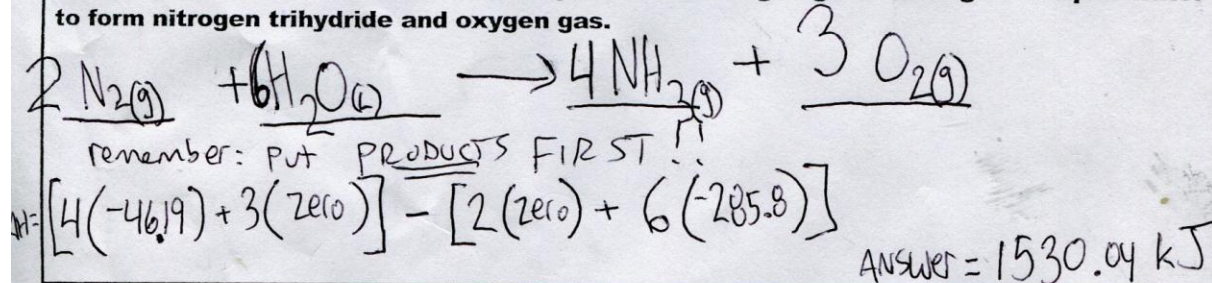 to form nitrogen trihydride and oxygen gas.
2 N2(g) + 6H2O(L) → 4 NH3(g) + 3 O2(g)
remember: Put PRODUCTS FIRST!!
ΔH= [4(-46.19) + 3(zero)] - [2(zero) + 6(-285.8)]
ANSWER = 1530.04 kJ